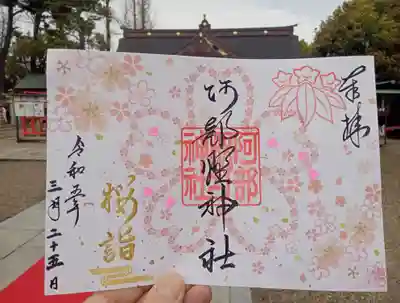 奉拝
阿部野神社
阿部
神社
桜詣
令和五年
三月二十五日